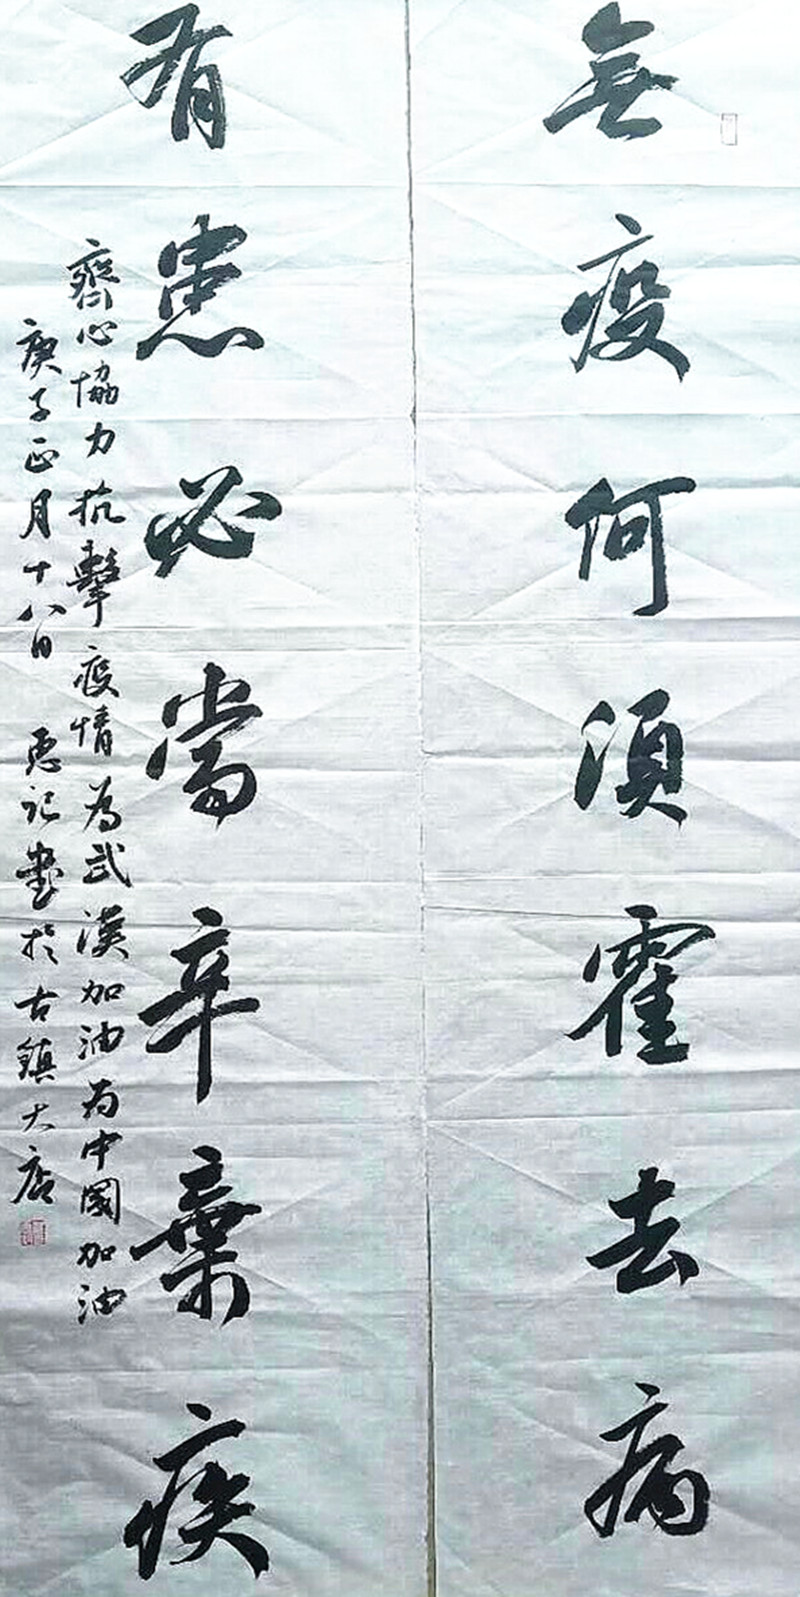 無疫何須霍去病
有患必當辛棄疾
齊心協力抗擊疫情為武漢加油為中國加油
庚子正月十八日 記書於古鎮大店